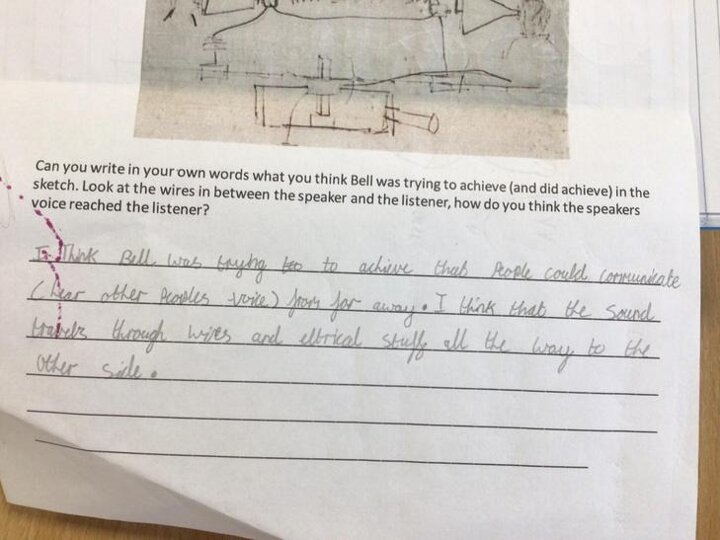 Can you write in your own words what you think Bell was trying to achieve (and did achieve) in the
sketch. Look at the wires in between the speaker and the listener, how do you think the speakers
voice reached the listener?
I Think Bell was trying too to achieve that People could communicate
( hear other Peoples voice) from far away. I think that the Sound
travels through wires and eltrical stuff all the way to the
Other side.